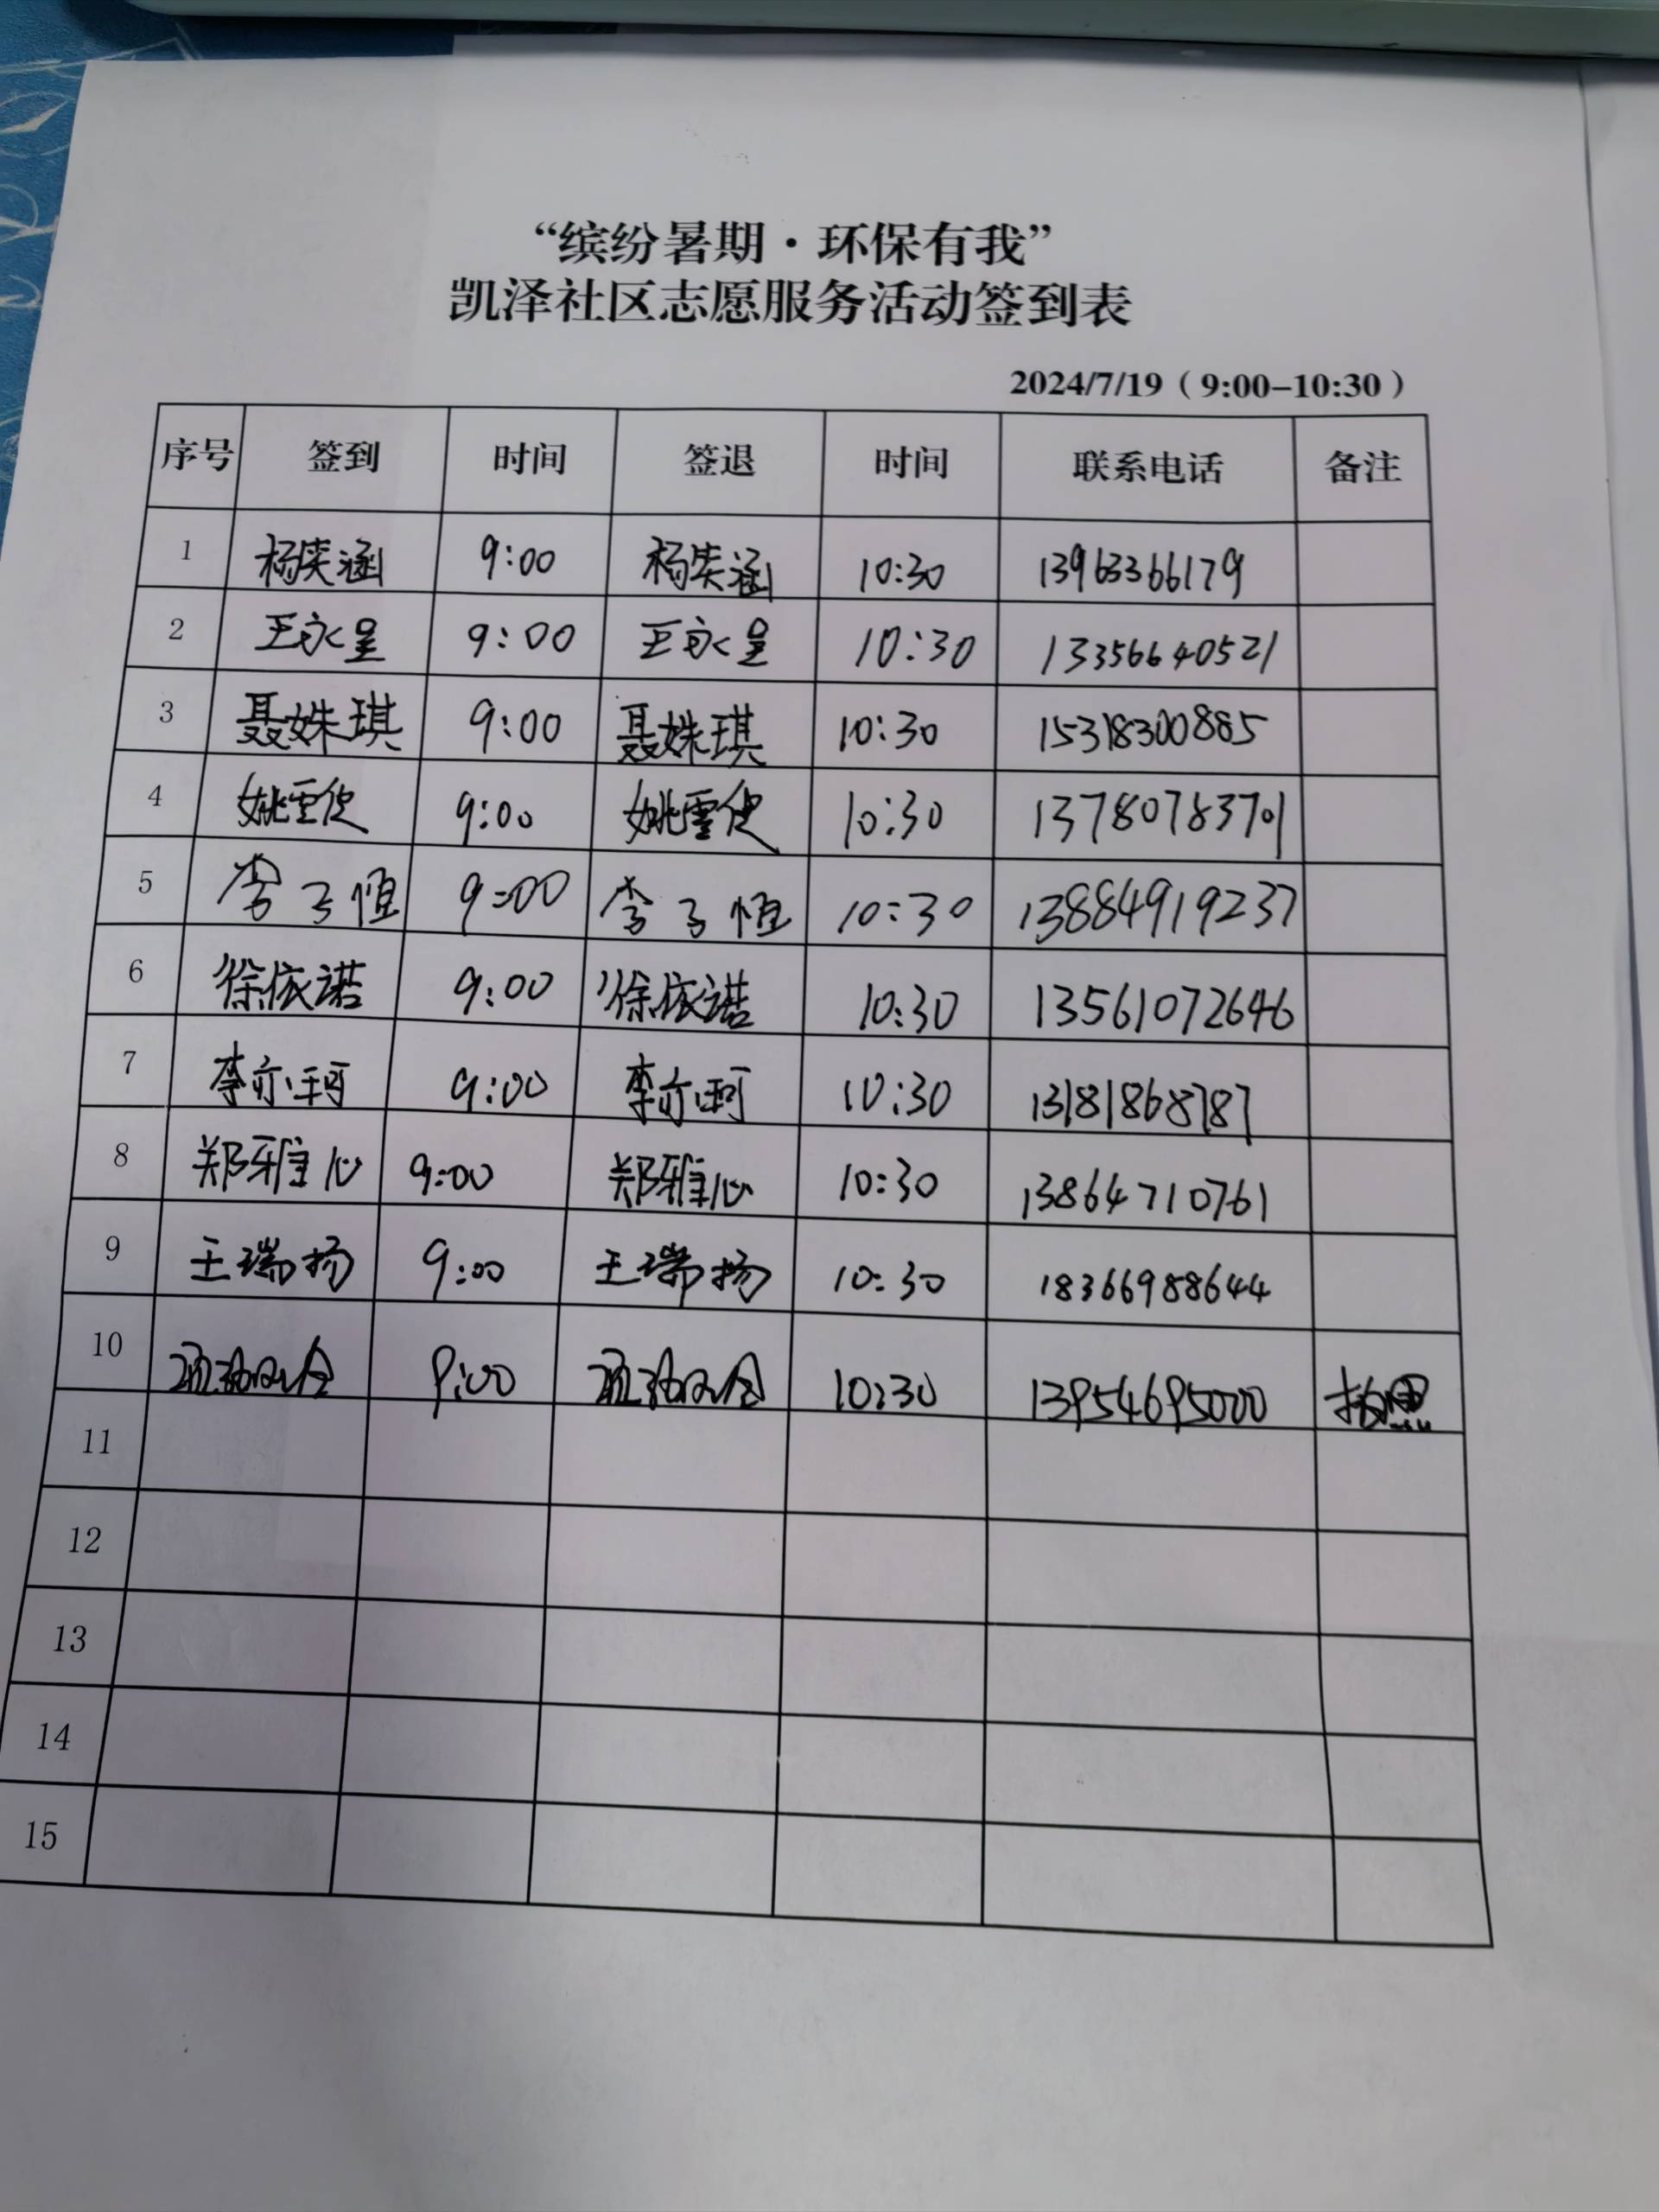 “缤纷暑期·环保有我”
凯泽社区志愿服务活动签到表
2024/7/19（9:00-10:30）
序号 签到 时间 签退 时间 联系电话 备注
1 杨奕涵 9:00 杨奕涵 10:30 13963366179
2 王永呈 9:00 王永呈 10:30 13356640521
3 聂姝琪 9:00 聂姝琪 10:30 15318300885
4 姚雪 9:00 姚雪 10:30 13780783701
5 李子恒 9:00 李子恒 10:30 13884919237
6 徐依诺 9:00 徐依诺 10:30 13561072646
7 李亦珂 9:00 李亦珂 10:30 13181868787
8 郑雅心 9:00 郑雅心 10:30 13864710761
9 王瑞扬 9:00 王瑞扬 10:30 18366988644
10 9:00 10:30 13954695000 拍照
11
12
13
14
15